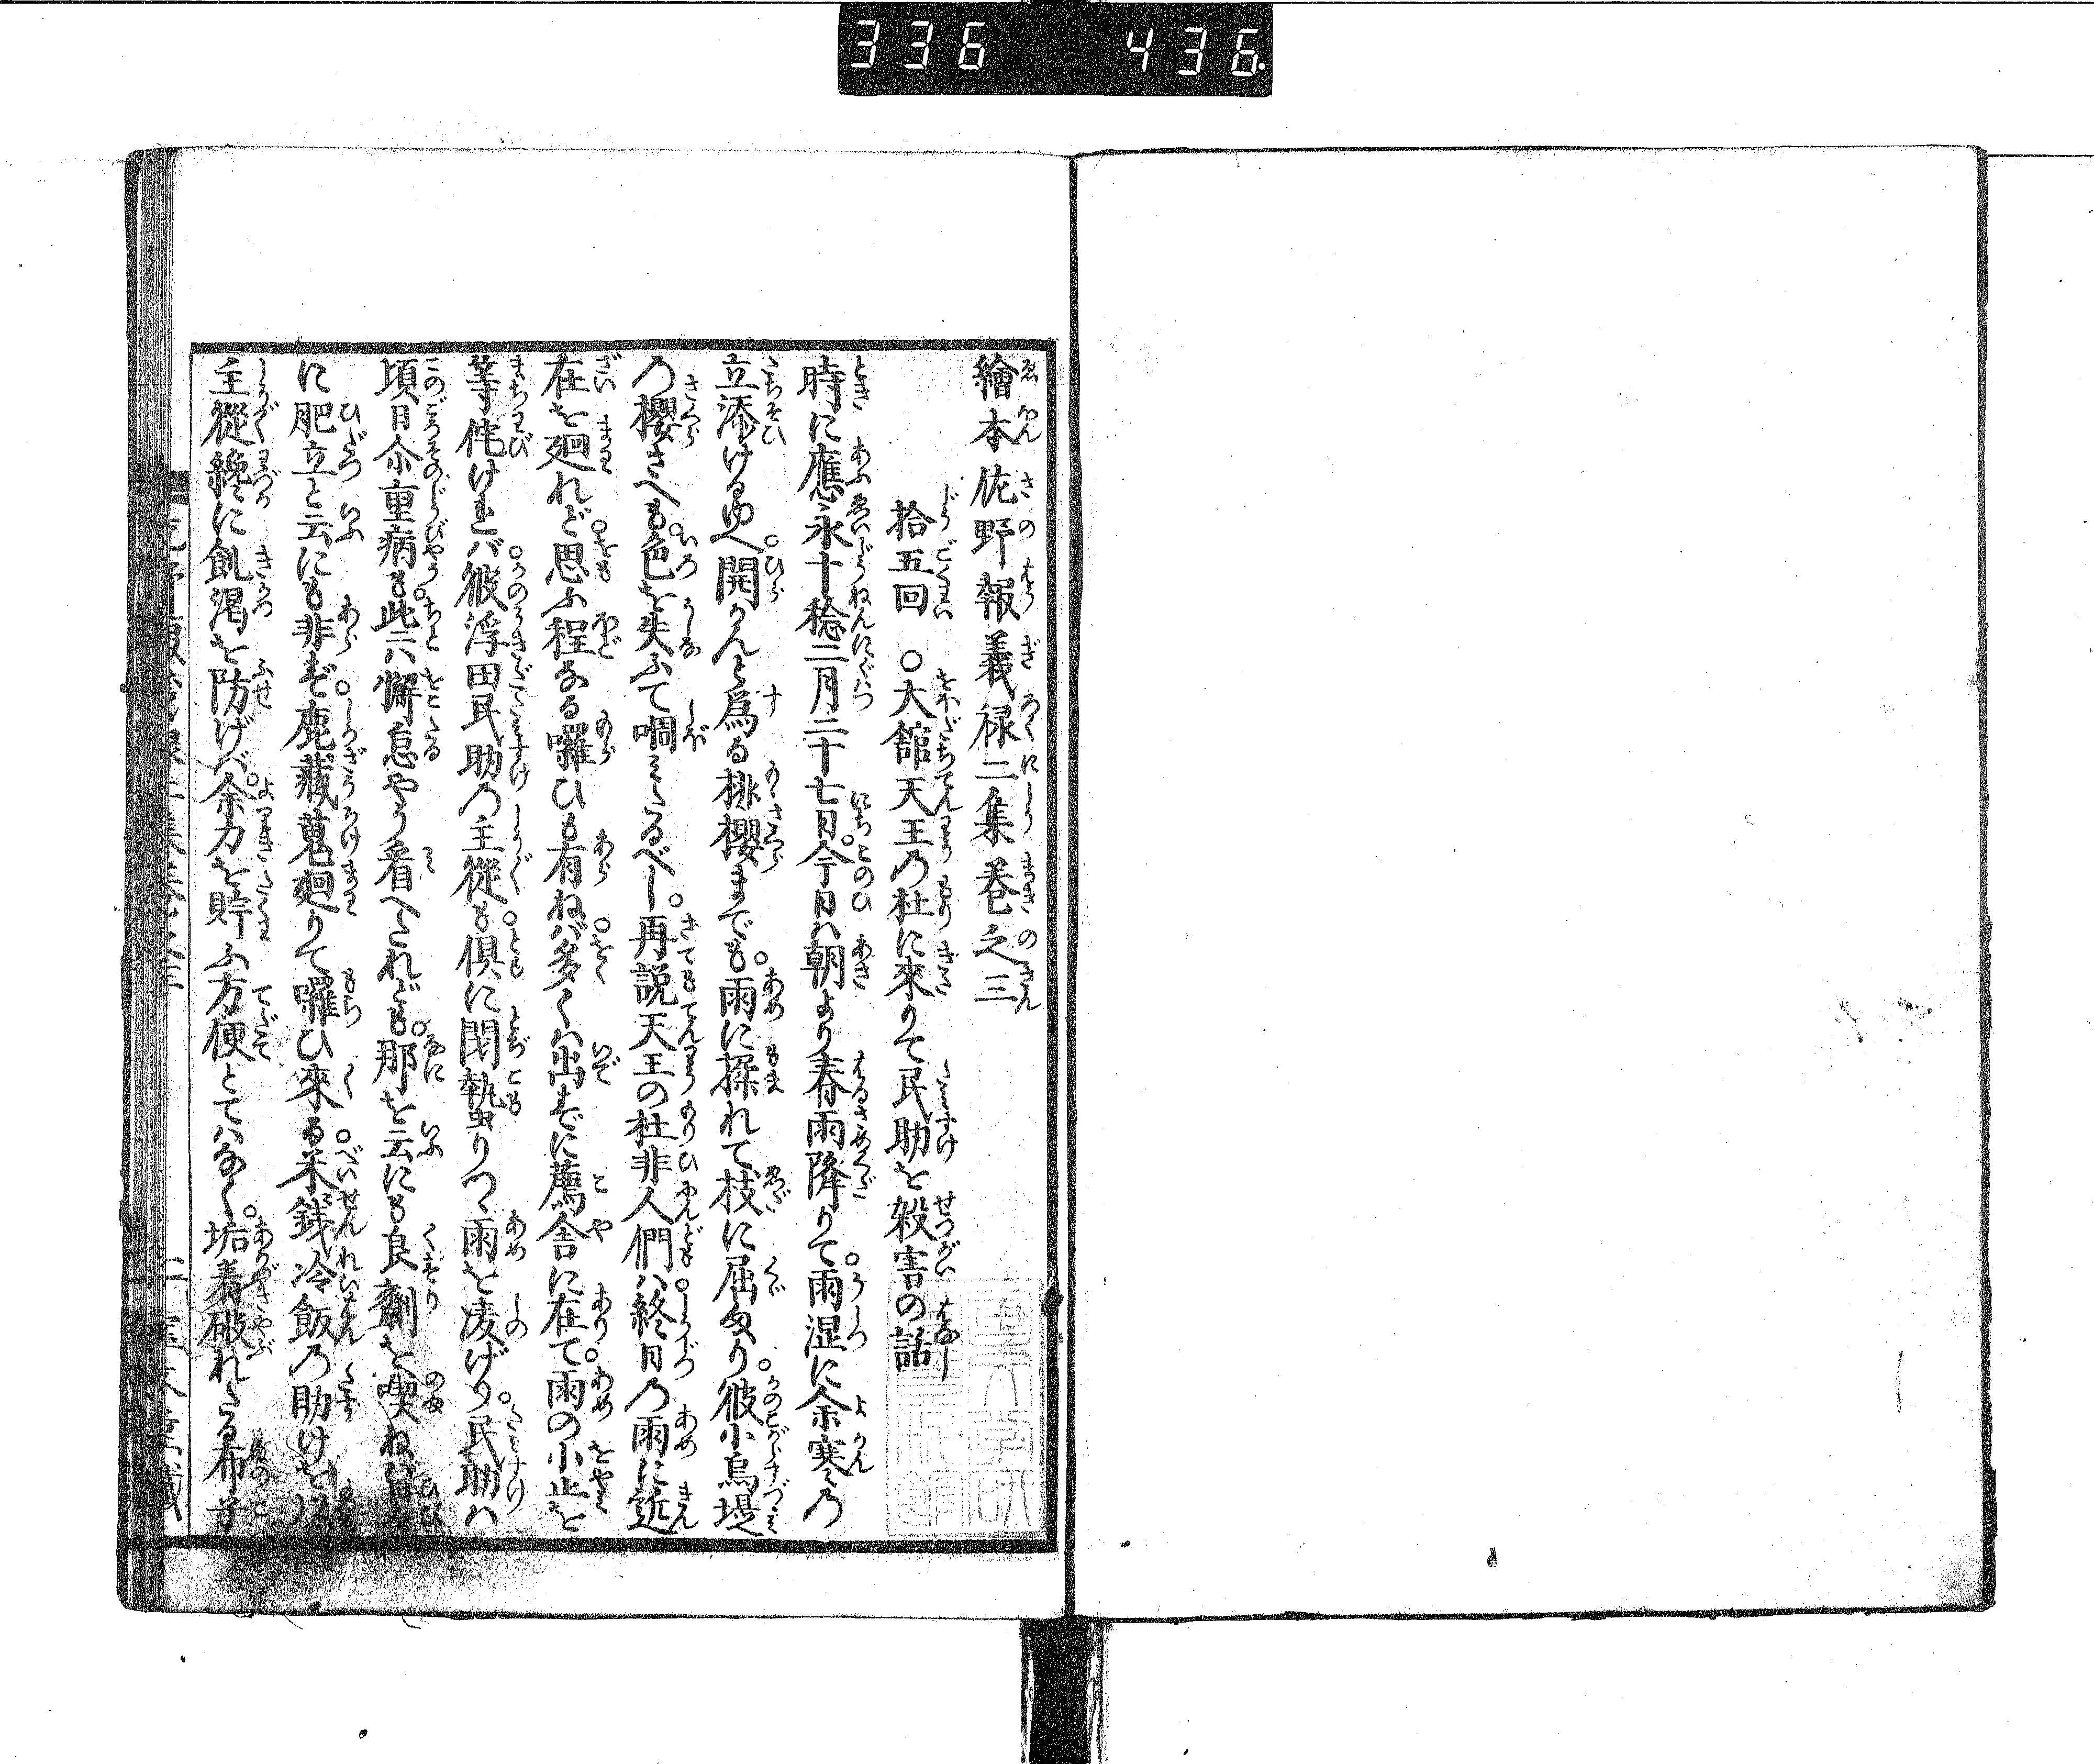 336 436.
繪本佐野報義禄二集巻之三
拾五回 ○大舘天王乃杜に來りて民助を殺害の話
時に應永十稔二月二十七日。今日ハ朝より春雨降りて。雨湿に余寒乃
立添けるゆへ。開かんと爲る桃櫻までも。雨に揉れて枝に屈まり。彼小烏堤
乃櫻さへも。色を失ふて啁みたるべし。再説天王の杜非人們ハ。終日乃雨に近
在を廻れど。思ふ程なる囉ひも有ねバ。多くハ出ずに薦舎に在て。雨の小止を
等侘けれバ。彼浮田民助乃主從も。倶に閉蟄りつゝ雨を凌げり。民助ハ
頃日尒重病も。此ニハ懈怠やう看へたれども。那を云にも良劑を喫ねバ
に肥立と云にも非ず。鹿蔵蒐廻りて囉ひ來る。米錢冷飯乃助けを以
主從纔に飢渇を防げバ。余力を貯ふ方便とてハなく。垢着破れたる布子